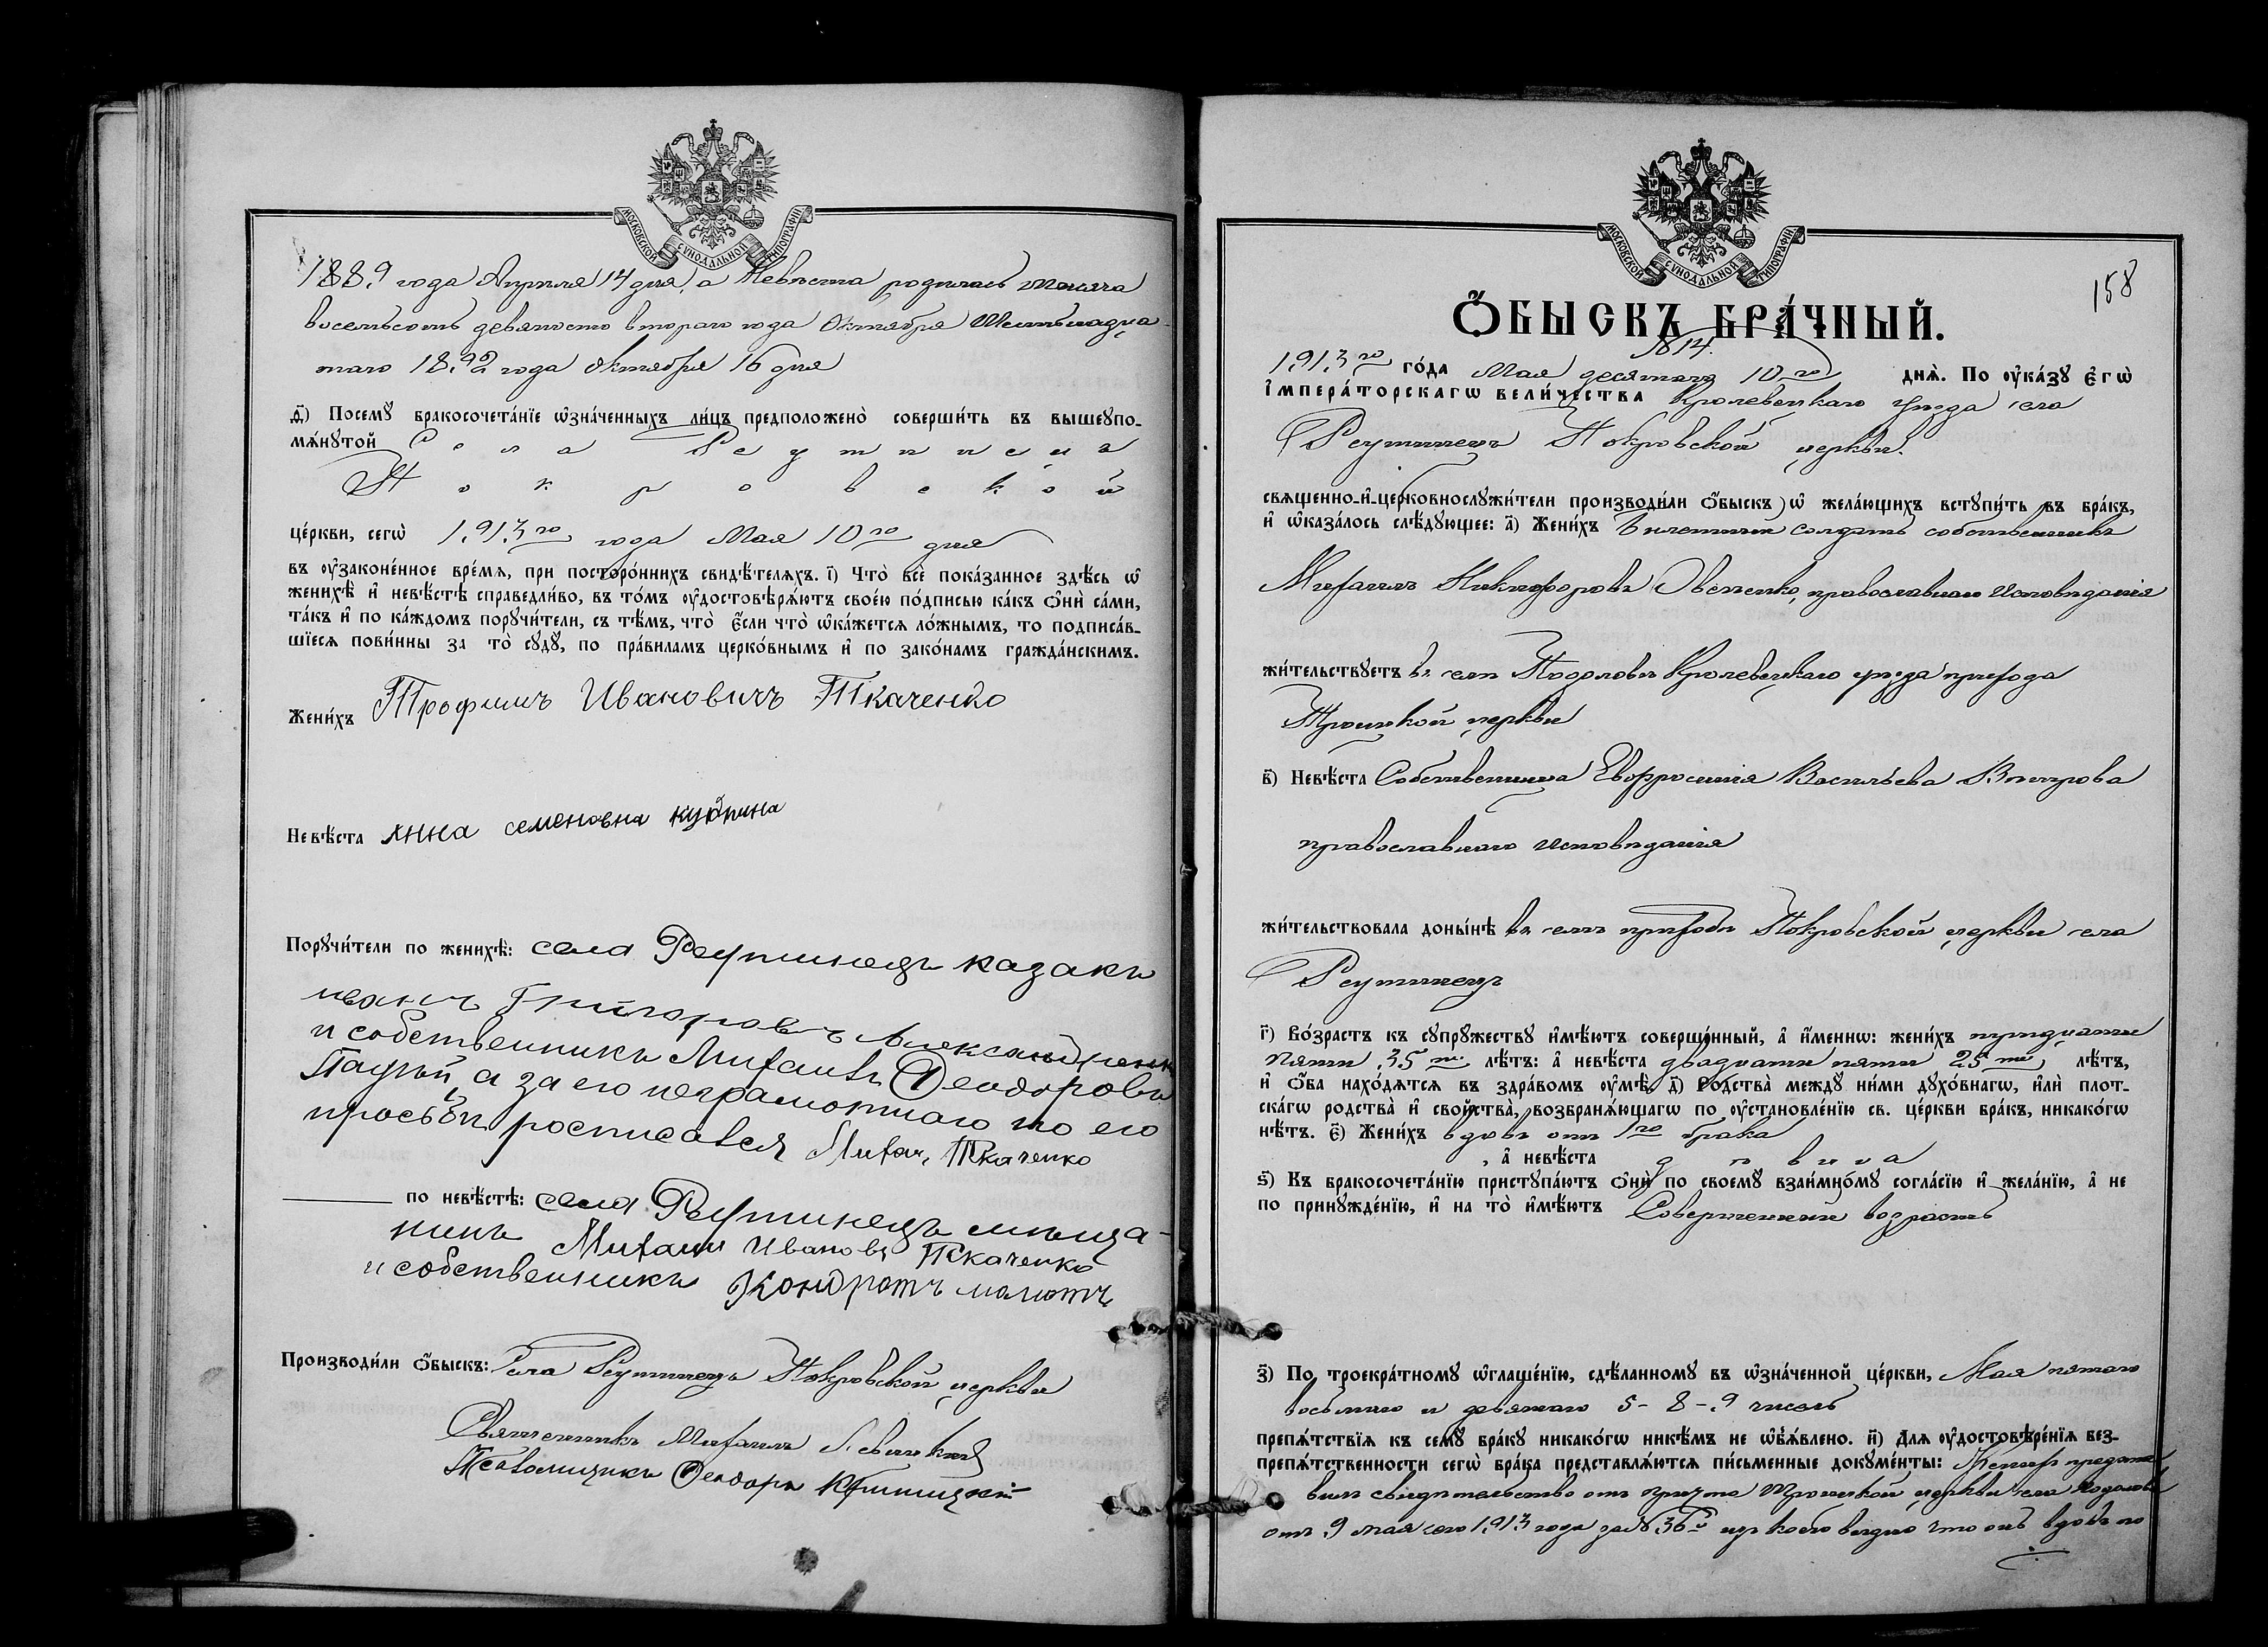 МОСКОВСКОЙ СѴНОДАЛЬНОЙ ТИПОГРАФІИ
1889 года Апреля 14 дня, а Невеста родилась тысяча
восемьсотъ девяносто второго года Октября Шестьнадца-
таго 1892 года октября 16 дня
д҃) Посемꙋ бракосочета́нїе ѡ҆зна́ченныхъ ли́цъ предположено̀ соверши́ть въ вышеꙋпо-
мѧ́нꙋтой Села Реутинецъ
Покровской
це́ркви, сегѡ̀ 1913 го года Мая 10 го дня
въ оу҆законе́нное вре́мѧ, при посторо́ннихъ свидѣ́телѧхъ. і҃) Что̀ всѐ пока́занное здѣ́сь ѡ҆
женихѣ̀ и҆ невѣ́стѣ справедли́во, въ то́мъ оу҆достовѣрѧ́ютъ свое́ю по́дписью ка́къ ѻ҆нѝ са́ми,
та́къ и҆ по ка́ждомъ порꙋчи́тели, съ тѣ́мъ, что̀ є҆́сли что̀ ѡ҆ка́жетсѧ ло́жнымъ, то подписа́в-
шїесѧ пови́нны за то̀ сꙋдꙋ̀, по пра́виламъ церко́внымъ и҆ по зако́намъ гражда́нскимъ.
Жени́хъ Трофимъ Ивановичъ Ткаченко
Невѣ́ста Анна семеновна кубрина
Порꙋчи́тели по женихѣ̀: села Реутинецъ казакъ
иванъ Григоровъ Александренк
и собственикъ Михаилъ Ѳеодоровъ
а за его неграмотного по его
просьбѣ росписався Михаи, Ткаченко
по невѣ́стѣ: села Реутинецъ мѣща-
нинъ Михаил Ивановъ Ткаченко
и собственникъ Кондратъ малютъ
Производи́ли ѻ҆́быскъ: Села Реутинецъ Покровской церкви
Священникъ Михаилъ Левицкій
Псаломщикъ Ѳеодоръ
МОСКОВСКОЙ СѴНОДАЛЬНОЙ ТИПОГРАФІИ
158
Ѻ҆́БЫСКЪ БРА́ЧНЫЙ.
1914.
1913 го го́да Мая десятаго 10 го днѧ̀. По оу҆ка́зꙋ Є҆гѡ̀
І҆мпера́торскагѡ вели́чества Кролевецкаго уѣзда села
Реутинецъ Покровской церкви
свѧще́нно-и҆-церковнослꙋжи́тели производи́ли ѻ҆́быскъ ѡ҆ жела́ющихъ встꙋпи́ть въ бра́къ,
и҆ ѡ҆каза́лось слѣ́дꙋющее: а҃) Жени́хъ билетный солдатъ собственикъ
Михаилъ Никифоровъ Овсеенко, православнаго исповѣданія
жи́тельствꙋетъ въ селѣ Подоловѣ Кролевецкаго уѣзда прихода
Троицкой церкви
в҃) Невѣ́ста Собственница Евфросинія Васильева
православнаго исповѣданія
жи́тельствовала доны́нѣ въ семъ приходѣ Покровской церкви села
Реутинецъ
г҃) Во́зрастъ къ сꙋпрꙋ́жествꙋ и҆мѣ́ютъ соверше́нный, а҆ и҆́меннѡ: жени́хъ тридцати
пяти 35 ти лѣ́тъ: а҆ невѣ́ста двадцати пяти 25 ти лѣ́тъ,
и҆ ѻ҆́ба нахо́дѧтсѧ въ здра́вомъ оу҆мѣ̀. д҃) Родства̀ междꙋ̀ ни́ми дꙋхо́внагѡ, и҆лѝ плот-
ска́гѡ родства̀ и҆ сво́йства̀, возбранѧ́ющагѡ по оу҆становле́нїю св. це́ркви бра́къ, никако́гѡ
нѣ́тъ. є҃) Жени́хъ вдовъ отъ 1 го брака
, а҆ невѣ́ста дѣвица
ѕ҃) Къ бракосочета́нїю пристꙋпа́ютъ ѻ҆нѝ по своемꙋ̀ взаи́мномꙋ согла́сїю и҆ жела́нїю, а҆ не
по принꙋжде́нїю, и҆ на то̀ и҆мѣ́ютъ Совершенный возрастъ
з҃) По троекра́тномꙋ ѡ҆глаше́нїю, сдѣ́ланномꙋ въ ѡ҆зна́ченной це́ркви, Мая пятаго
восьмаго и девятаго 5- 8 -9 чиселъ
препѧ́тствїѧ къ семꙋ̀ бра́кꙋ никако́гѡ никѣ́мъ не ѡ҆б̾ѧ́влено. и҃) Длѧ оу҆достовѣре́нїѧ без-
препѧ́тственности сегѡ̀ бра́ка представлѧ́ютсѧ пи́сьменные докꙋме́нты: Женихъ предста
вилъ свидѣтельство отъ причта Троицкой церкви села Подолова
отъ 9 мая сего 1913 года за № 36 изъ коего видно что онъ вдовъ по